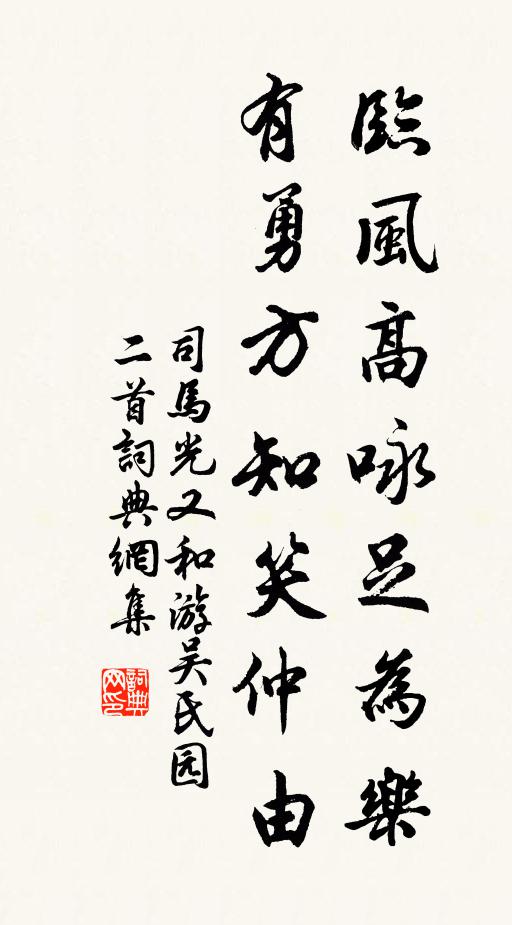 臨風高咏足為樂
有勇方知笑仲由
司馬光又和游吴氏园
二首詞典網集
詞典网印